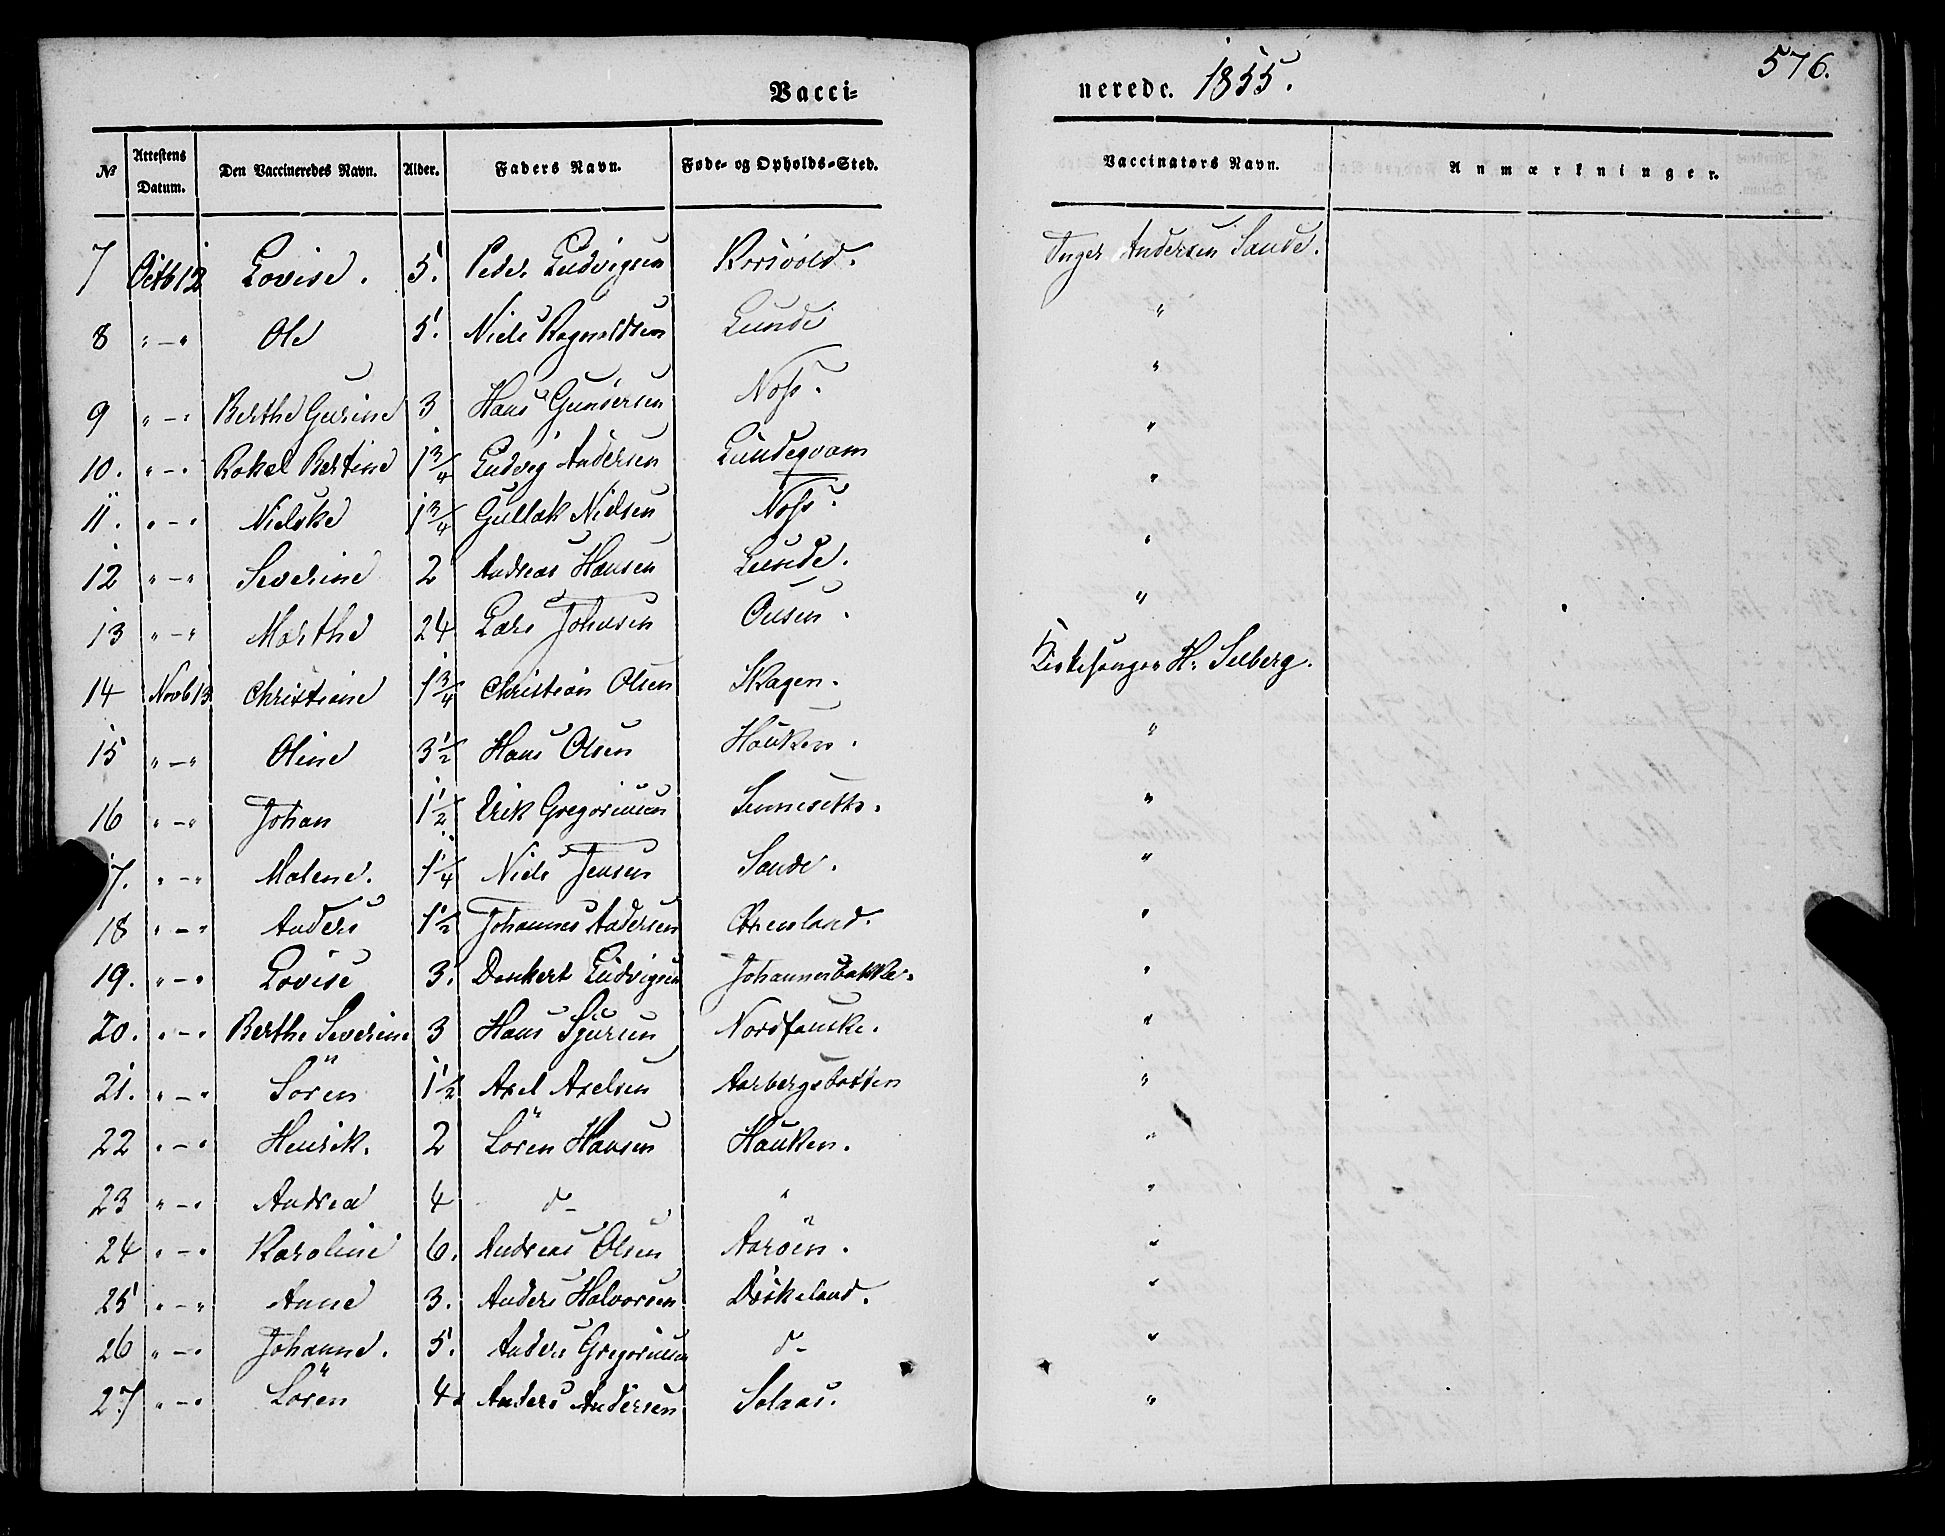 576.
Vacci- nerede. 1855.
No Attestens Datum. Den Vaccineredes Navn. Alder. Faders Navn. Føde- og Opholds-Sted. Vaccinateurs Navn. Anmærkninger.
7 Octb 12 Lovise. 5. Peder Ludvigsen Korsvold. Inger Andersen Sande.
8 " - " Ole 5. Niels Ragnvaldsen Lunde "
9 " - " Berthe Gurine 3 Hans Gunsersen Noss. "
10. " - " Rakel Bertine 1 3/4 Ludvig Andersen Lundeqvam "
11. " - " Nielske 1 3/4 Gullak Nielsen Noss. "
12 " - " Severine 2 Andreas Hansen Lunde. "
13 " - " Marthe 24 Lars Johnsen Ousen. "
14 Novb 13 Christiane 1 3/4 Christian Olsen Skagen. Kirkesanger H. Selberg.
15 " - " Oline 3 1/2 Hans Olsen Hauken. "
16 " - " Johan 1 1/2 Erik Gregoriusen "
17. " - " Malene. 1 1/4 Niels Jensen Sande. "
18 " - " Anders 1 1/2 Johannes Andersen "
19. " - " Lovise 3. Denkert Ludvigsen Johannesbakke. "
20. " - " Berthe Severine 3 Hans Sjursen Nordfauske. "
21. " - " Sören 1 1/2 Axel Axelsen Aarbergsbotten "
22 " - " Henrik. 2 Sören Hansen Hauken. "
23 " - " Andrea 4 d- " "
24 " - " Karoline 6. Andreas Olsen Aaröen. "
25 " - " Anne 3. Anders Halvorsen Döskeland. "
26 " - " Johanne. 5. Anders Gregoriusen d- "
27 " - " Sören 4. Anders Andersen Solaas. "